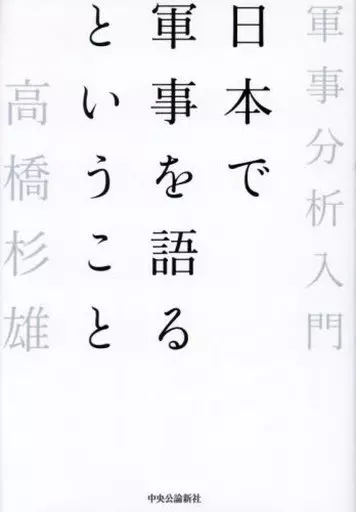 軍事分析入門
日本で
軍事を語る
ということ
高橋杉雄
中央公論新社